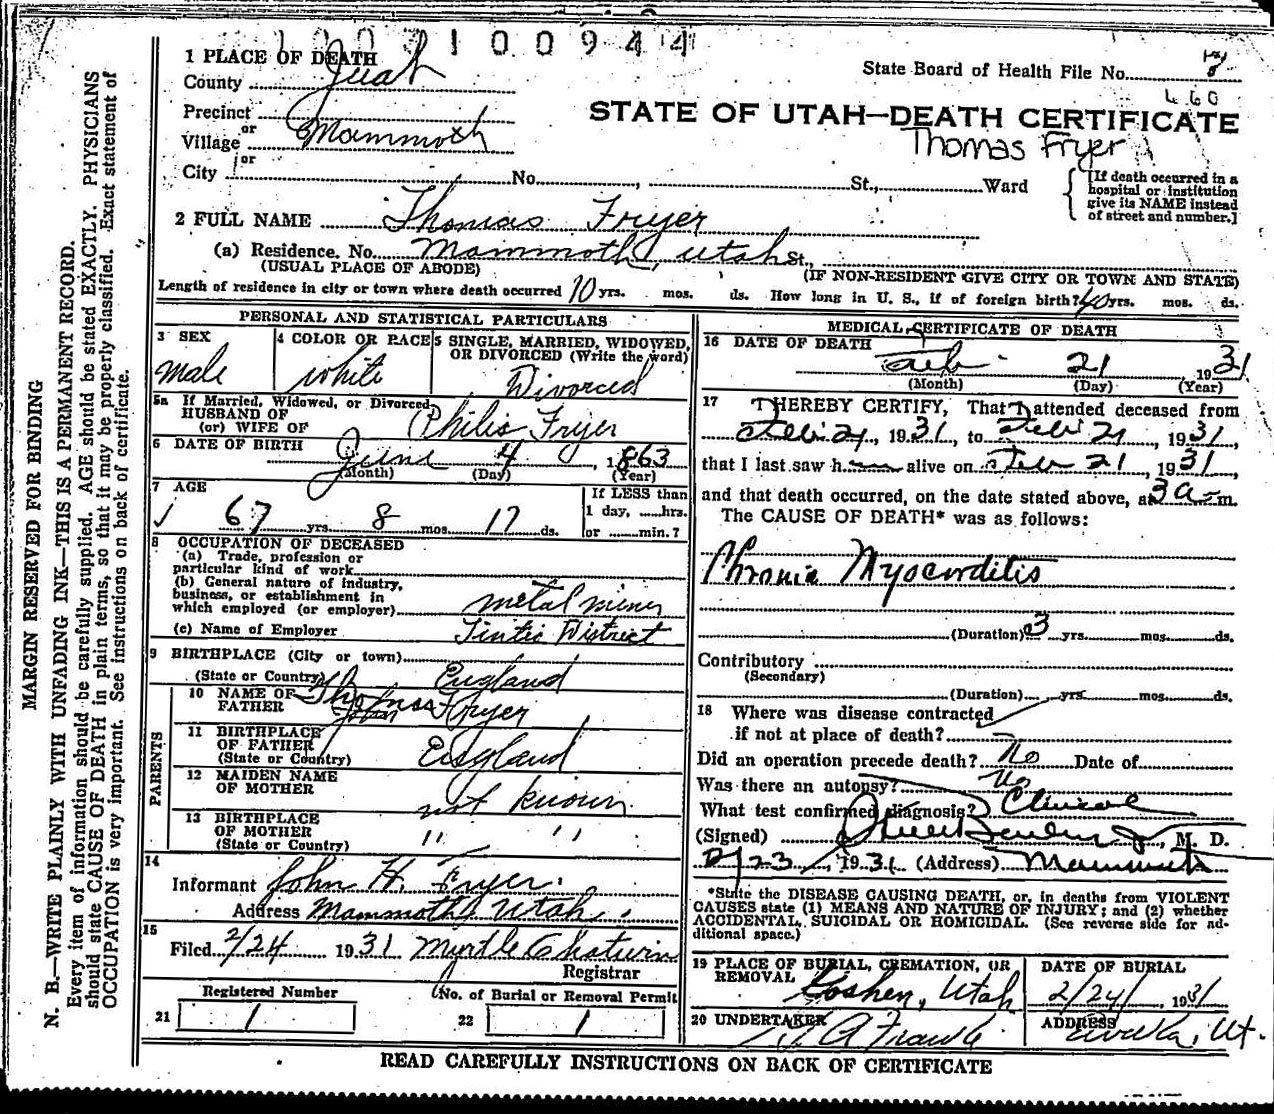 1 0 0 9 4 4
1 PLACE OF DEATH
County Juab
State Board of Health File No. 8
460
Precinct
or
Village Mammoth
or
City No. , St., Ward
STATE OF UTAH—DEATH CERTIFICATE
Thomas Fryer
[If death occurred in a
hospital or institution
give its NAME instead
of street and number.]
2 FULL NAME Thomas Fryer
(a) Residence. No. Mammoth, Utah St.,
(USUAL PLACE OF ABODE) (IF NON-RESIDENT GIVE CITY OR TOWN AND STATE)
Length of residence in city or town where death occurred 10 yrs. mos. ds. How long in U. S., if of foreign birth? 40 yrs. mos. ds.
MARGIN RESERVED FOR BINDING
N. B.—WRITE PLAINLY WITH UNFADING INK—THIS IS A PERMANENT RECORD.
Every item of information should be carefully supplied. AGE should be stated EXACTLY. PHYSICIANS
should state CAUSE OF DEATH in plain terms, so that it may be properly classified. Exact statement of
OCCUPATION is very important. See instructions on back of certificate.
PERSONAL AND STATISTICAL PARTICULARS
3 SEX
male
4 COLOR OR RACE
white
5 SINGLE, MARRIED, WIDOWED,
OR DIVORCED (Write the word)
Divorced
5a If Married, Widowed, or Divorced
HUSBAND OF
(or) WIFE OF Philis Fryer
6 DATE OF BIRTH
June 4, 1863
(Month) (Day) (Year)
7 AGE
67 yrs. 8 mos. 17 ds.
If LESS than
1 day, hrs.
or min.?
8 OCCUPATION OF DECEASED
(a) Trade, profession or
particular kind of work
(b) General nature of industry,
business, or establishment in
which employed (or employer) metal miner
(c) Name of Employer Tintic District
9 BIRTHPLACE (City or town)
(State or Country) England
PARENTS
10 NAME OF
FATHER Thomas
John Fryer
11 BIRTHPLACE
OF FATHER
(State or Country) England
12 MAIDEN NAME
OF MOTHER not known
13 BIRTHPLACE
OF MOTHER
(State or Country) " "
14
Informant John H. Fryer
Address Mammoth, Utah.
15
Filed 2/24 1931 Myrtle Chatwin
Registrar
Registered Number
21 1
No. of Burial or Removal Permit
22 1
MEDICAL CERTIFICATE OF DEATH
16 DATE OF DEATH
Feb 21 1931
(Month) (Day) (Year)
17 I HEREBY CERTIFY, That I attended deceased from
Feb 21, 1931, to Feb 21, 1931,
that I last saw him alive on Feb 21, 1931,
and that death occurred, on the date stated above, at 3 a m.
The CAUSE OF DEATH* was as follows:
Chronic Myocarditis
(Duration) 3 yrs. mos. ds.
Contributory
(Secondary)
(Duration) yrs. mos. ds.
18 Where was disease contracted
if not at place of death?
Did an operation precede death? No Date of
Was there an autopsy? No
What test confirmed diagnosis? Clinical
(Signed) M. D.
2/23, 1931 (Address) Mammoth
*State the DISEASE CAUSING DEATH, or, in deaths from VIOLENT
CAUSES state (1) MEANS AND NATURE OF INJURY; and (2) whether
ACCIDENTAL, SUICIDAL OR HOMICIDAL. (See reverse side for ad-
ditional space.)
19 PLACE OF BURIAL, CREMATION, OR
REMOVAL Goshen, Utah
DATE OF BURIAL
2/24, 1931
20 UNDERTAKER
ADDRESS
Eureka, Ut.
READ CAREFULLY INSTRUCTIONS ON BACK OF CERTIFICATE